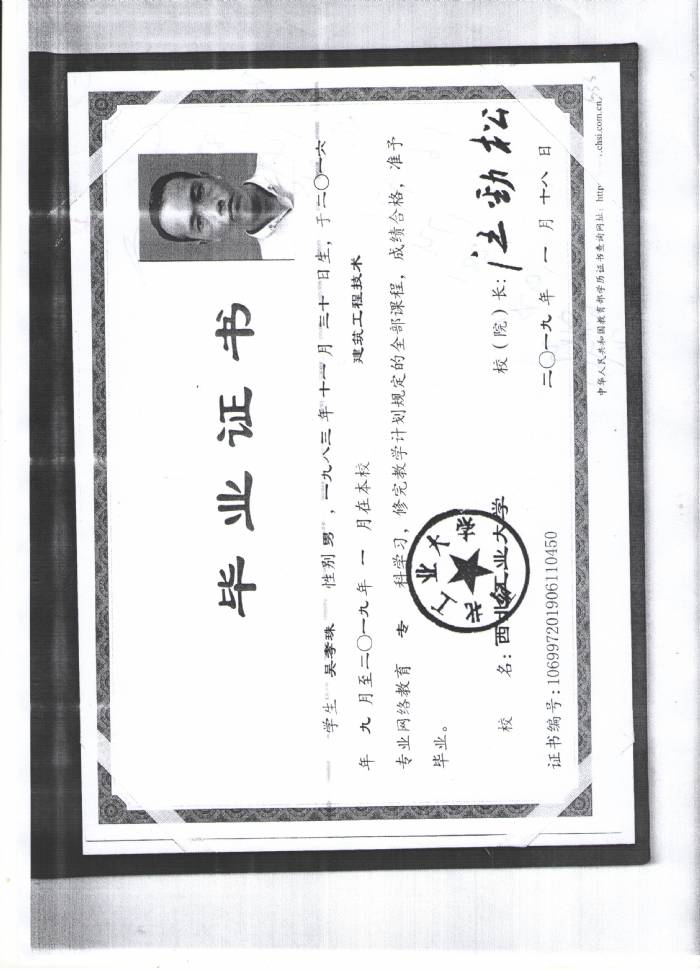 毕业证书
学生 吴孝珠 性别 男 ，一九八三年 十一月 三十 日生，于二〇一六
年 九 月至二〇一九年 一 月在本校 建筑工程技术
专业网络教育 专 科学习，修完教学计划规定的全部课程，成绩合格，准予
毕业。
校 名：西北工业大学 校（院）长：汪劲松
证书编号：106997201906110450 二〇一九 年 一 月 十八 日
中华人民共和国教育部学历证书查询网址：http .chsi.com.cn